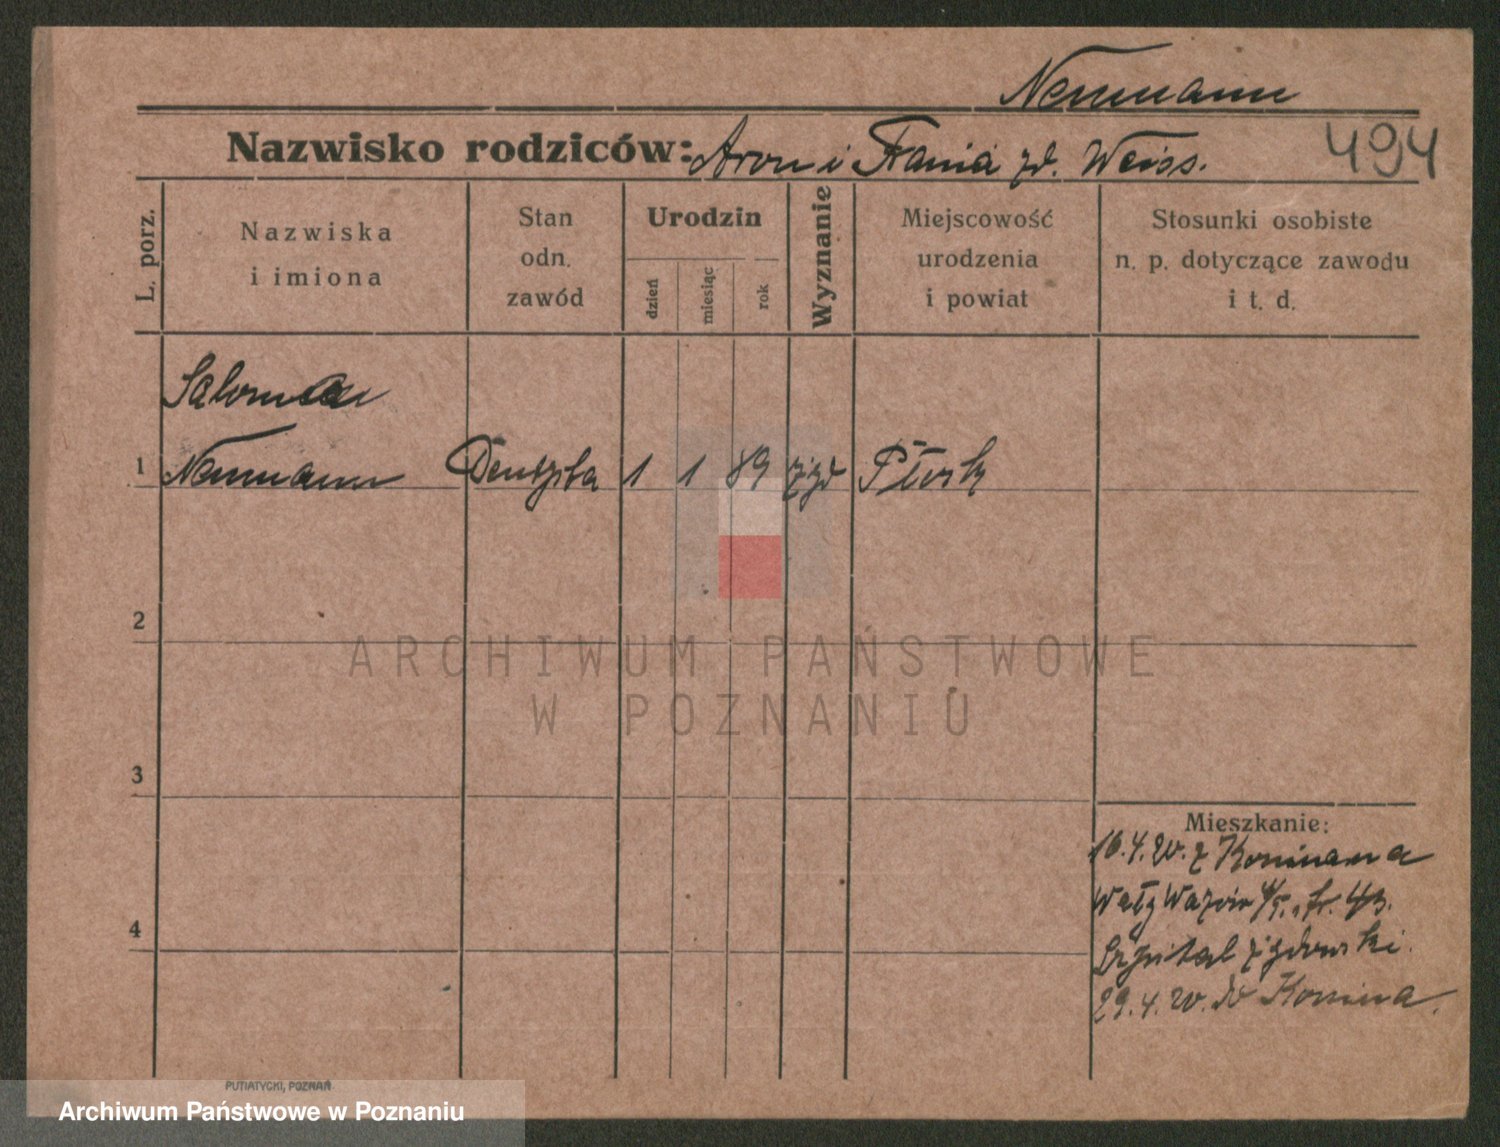 Neumann
Nazwisko rodziców: Aron i Frania zd. Weiss.
494
L. porz.
Nazwiska
i imiona
Stan
odn.
zawód
Urodzin
dzień
miesiąc
rok
Wyznanie
Miejscowość
urodzenia
i powiat
Stosunki osobiste
n. p. dotyczące zawodu
i t. d.
Salomea
1 Neumann Dentystka 1 1 89 żyd Płock
2
ARCHIWUM PAŃSTWOWE
W POZNANIU
3
Mieszkanie:
16.4.20. z
Wały
4
Szpital żydowski.
29.4.20. do Konina.
PUTIATYCKI, POZNAŃ.
Archiwum Państwowe w Poznaniu